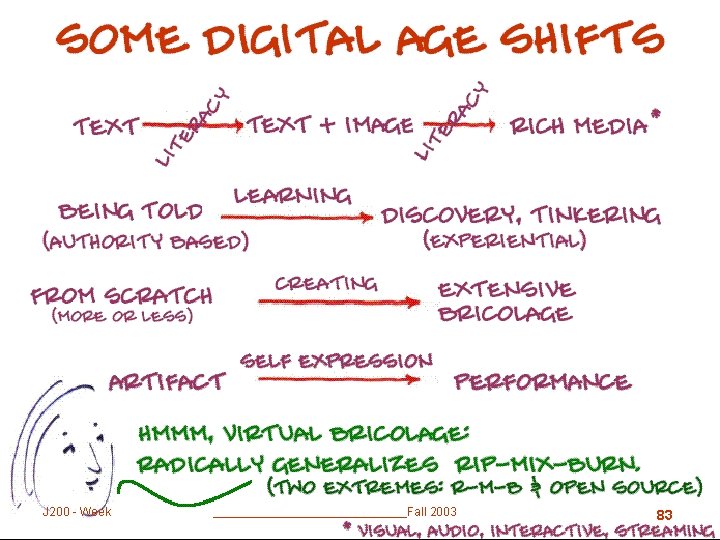 SOME DIGITAL AGE SHIFTS
TEXT LITERACY TEXT + IMAGE LITERACY RICH MEDIA *
LEARNING
BEING TOLD DISCOVERY, TINKERING
(AUTHORITY BASED) (EXPERIENTIAL)
CREATING
FROM SCRATCH EXTENSIVE
(MORE OR LESS) BRICOLAGE
SELF EXPRESSION
ARTIFACT PERFORMANCE
HMMM, VIRTUAL BRICOLAGE:
RADICALLY GENERALIZES RIP-MIX-BURN.
(TWO EXTREMES: R-M-B & OPEN SOURCE)
J200 - Week ______________________________Fall 2003 83
* VISUAL, AUDIO, INTERACTIVE, STREAMING